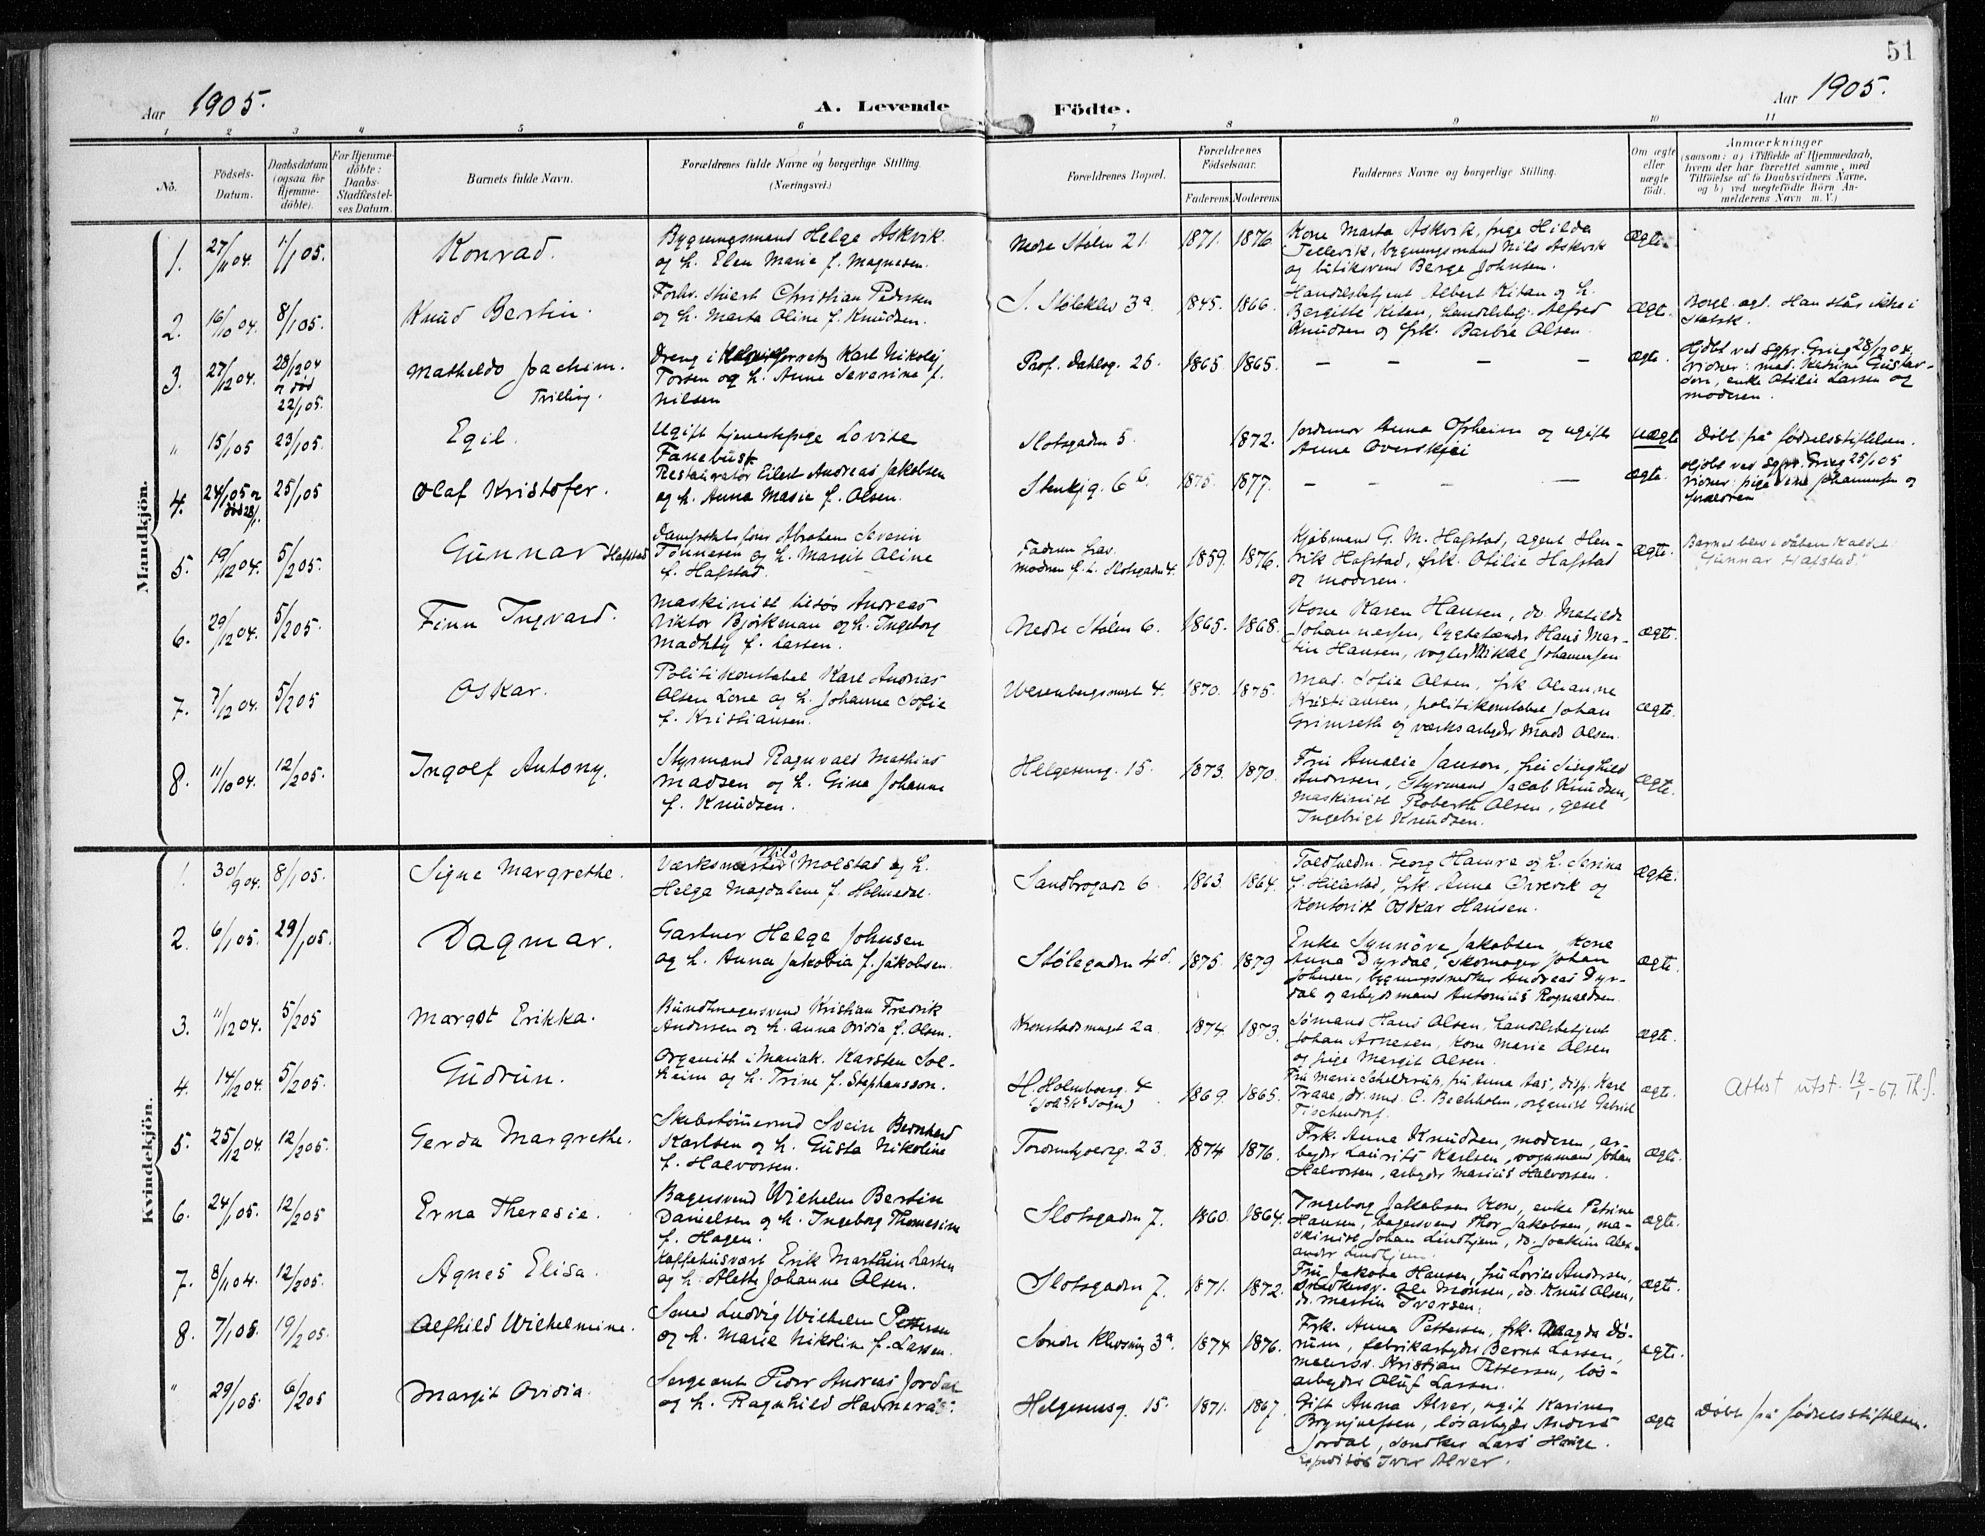 51
Aar 1905.
A. Levende Födte.
Aar 1905.
1 2 3 4 5 6 7 8 9 10 11
No.
Födsels-Datum.
Daabsdatum (ogsaa for Hjemme-döbte).
For Hjemme-döbte: Daabs-Stadfæstel-ses Datum.
Barnets fulde Navn.
Forældrenes fulde Navne og borgerlige Stilling. (Næringsvei.)
Forældrenes Bopæl.
Forældrenes Födselsaar.
Faderens Moderens
Faddernes Navne og borgerlige Stilling.
Om ægte eller uægte födt.
Anmærkninger
(saasom: a) i Tilfælde af Hjemmedaab, hvem der har forrettet samme, med Tilföielse af to Daabsvidners Navne, og b) ved uægtefödte Börn An-melderens Navn m. V.)
Mandkjön.
1. 27/11 04. 1/1 05. Konrad. Bygningsmand Helge Askvik. og h. Elen Marie f. Magnesen. Nedre Stølen 21. 1871. 1876. Kone Marta Askvik, pige Hilda Tellevik, bygningsmand Nils Askvik og butiksvend Berge Johnsen. Ægte.
2. 16/10 04. 8/1 05. Knud Bertin. Forhv. Christian Pedersen og h. Marta Oline f. Knudsen. S. Stølekler 3a. 1845. 1866. Handelsbetjent Albert Kitan og h. Bergitte Kitan, handelsbetj. Alfred Knudsen og frk. Barbra Olsen. Ægte. Han står ikke i Statsk.
3. 27/12 04. 28/12 04 død 22/1 05. Mathildo Joachim. Tvilling. Dreng i Karl Nikolej Torsen og h. Anne Severine f. Nilsen Prof. Dahlsg. 25. 1865. 1865. – – – – Ægte. Hjdbt ved Sgpr. Grieg 28/12 04. vidner: mad. Katrine Gustav-sen, enke Otilie Larsen og moderen.
" 15/1 05 23/1 05. Egil. Ugift tjenestepige Lovise Fanebust. Slotsgaden 5. 1872. Jordmor Anna Opheim og ugift Anna Overskjei uægte Døbt på fødselsstiftelsen.
4. 24/1 05 død 28/1. 25/1 05 Olaf Kristofer. Restauratør Eilert Andreas Jakobsen og h. Anna Marie f. Olsen. Stenkjg. 6b. 1875. 1877. – – – – Ægte. Hjdbt ved Sgpr. Grieg 25/1 05 vidner: pige Johannesen og forældren
5. 19/12 04. 5/2 05. Gunnar Hafstad Dampskibsfører Abraham Severin Tønnesen og h. Margit Aline f. Hafstad. Faderen Moderen f. t. Slotsgaden 4. 1859. 1876. Kjøbmand G. M. Hafstad, agent Hen-rik Hafstad, frk. Otilie Hafstad og moderen. Ægte. Barnet blev i dåben kaldet: Gunnar Hafstad.
6. 29/12 04. 5/2 05. Finn Ingvard. Maskinist Andreas Viktor Bjørkman og h. Ingeborg Mathly f. Larsen. Nedre Stølen 6. 1865. 1868. Kone Karen Hansen, do. Matilde Johannesen, lygtetænder Hans Mar-tin Hansen, vogter Mikal Johannesen Ægte.
7. 7/12 04. 5/2 05 Oskar. Politikonstabel Karl Andreas Olsen Lone og h. Johanne Sofie f. Kristiansen. Wesenbergsmuget 4. 1870. 1875. Mad. Sofie Olsen, frk. Oleanne Kristiansen, politikonstabel Johan Grimseth og værksarbeider Mads Olsen. Ægte.
8. 11/10 04. 12/2 05. Ingolf Antony. Styrmand Ragnvald Mathias Madsen og h. Gina Johanne f. Knudsen. Helgesensg. 15. 1873. 1870. Fru Amalie Janson, frk. Andersen, styrmand Jacob Knudsen, maskinist Roberth Olsen, gesel Ingebrigt Knudsen. Ægte.
Kvindekjön.
1. 30/9 04. 8/1 05. Signe Margrethe. Værksmester Nils Molstad og h. Helga Magdalene f. Holmedal. Sandbrogade 6 1863. 1864. Georg Hamre og h. Serina f. Hillestad, frk. Anna Orrevik og Kontorist Oskar Hansen. Ægte.
2. 6/1 05. 29/1 05. Dagmar. Gartner Helge Johnsen og h. Anna Jakobia f. Jakobsen. Stølegaden 4d. 1875. 1879 Enke Synnöve Jakobsen, kone Anna Dyrdal, skomager Johan Johnsen, bygningssnedker Andreas Dyr-dal og arbeidsmand Antonius Rognaldsen. Ægte.
3. 11/12 04. 5/2 05 Margot Erikka. Bundtmagersvend Kristian Fredrik Andersen og h. Anna Ovidia f. Olsen. Kronstadsmuget 2a. 1874. 1873. Sømand Hans Olsen, handelsbetjent Johan Arnesen, kone Marie Olsen og pige Margit Olsen. Ægte.
4. 14/12 04. 5/2 05. Gudrun. Organist i Mariak. Karsten Sol-heim og h. Trine f. Stephansson. H. Holmboesg. 4 (Joh.s k.s Sogn) 1869. 1865. Fru Marie Schelderup, fru Anna Aas, disp. Karl Traae, dr. med. C. Bechholm, organist Gabriel Tischendorf. Ægte. Attest utst. 12/1-67. Th.S.
5. 25/12 04. 12/2 05. Gerda Margrethe. Skibstømmermand Svein Bernhard Karlsen og h. Gusta Nikoline f. Halvorsen. Tordenskjoldsg. 23. 1874 1876. Frk. Anna Knudsen, moderen, ar-beider Laurits Karlsen, vognmand Johan Halvorsen, arbeider Marius Halvorsen. Ægte.
6. 24/1 05. 12/2 05 Erna Theresie. Bagersvend Wilhelm Bertin Danielsen og h. Ingeborg Thomasine f. Hagen. Slotsgaden 7. 1860. 1864. Ingeborg Jakobsen kone, enke Petrine Hansen, bagersvend Thor Jakobsen, ma-skinist Johan Lindhjem, do. Joakim Alex-ander Lindhjem. Ægte.
7. 8/11 04. 12/2 05. Agnes Elisa. Kaffehusvært Erik Martin Larsen og h. Alette Johanne Olsen. Slotsgaden 7. 1871. 1872. Fru Jakoba Hansen, fru Lovise Andersen, Ole Monsen, do. Knut Olsen, do. Martin Iversen. Ægte.
8. 7/1 05. 19/2 05. Alfhild Wilhelmine. Ludvig Wilhelm Pettersen og h. Marie Nikoline f. Larsen. Søndre Kloster 3a 1874 1876. Frk. Anna Pettersen, frk. Magda Dø-rum, fabrikarbeider Bernt Larsen, malersv. Kristian Pettersen, løs-arbeider Oluf Larsen. Ægte.
" 29/1 05. 6/2 05 Margit Ovidia. Sergeant Peder Andreas Jordal og h. Ragnhild Havnerås. Helgesensg. 15. 1871. 1867. Gift Anna Alver, ugift Karine Brynjulfsen, løsarbeider Anders Jordal, snedker Lars Hauge. Expeditør Iver Alver. Ægte Døbt på fødselsstiftelsen.